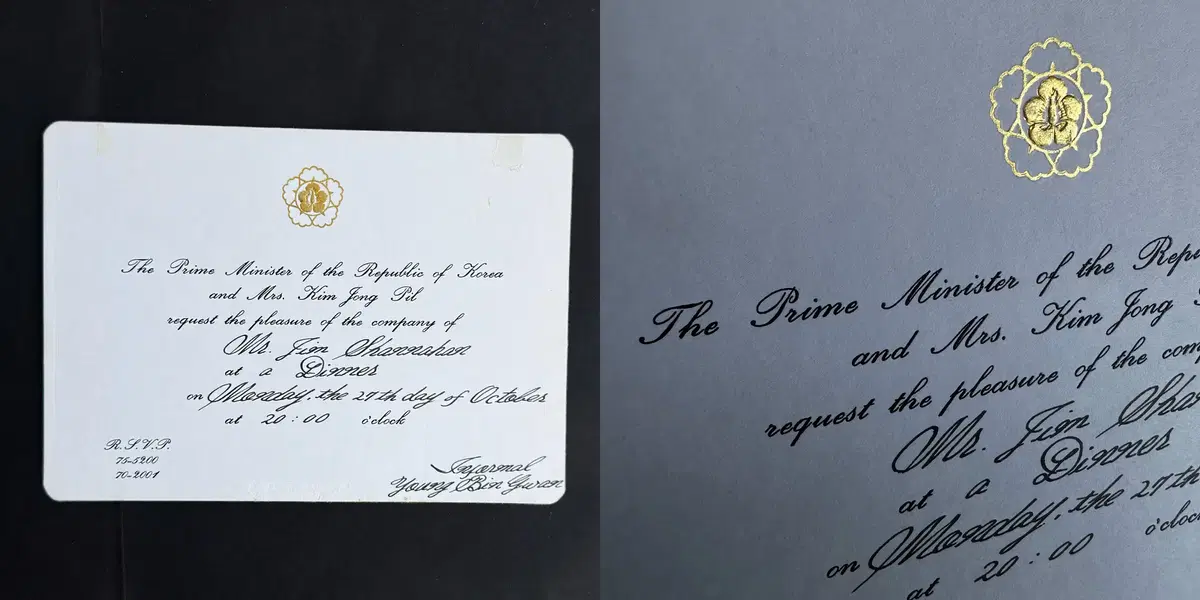 The Prime Minister of the Republic of Korea
and Mrs. Kim Jong Pil
request the pleasure of the company of
Mr. Jim Shannahan
at a Dinner
on Monday, the 27th day of October
at 20:00 o'clock
R.S.V.P.
75-5200
70-2001
Informal
Young Bin Gwan
The Prime Minister of the Repu
and Mrs. Kim Jong
request the pleasure of the com
Mr. Jim Sha
at a Dinner
on Monday, the 27th
at 20:00 o'cloc